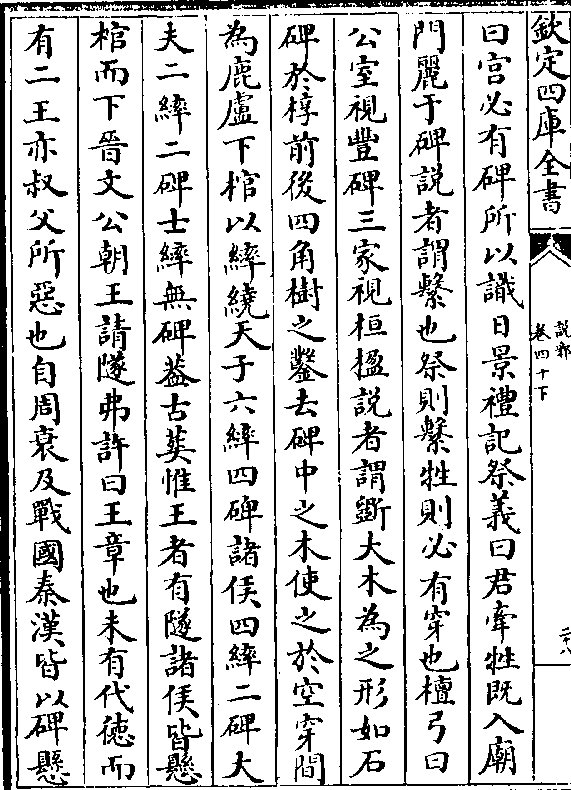 欽定四庫全書
說郛
卷四十下
二十八
曰宫必有碑所以識日景禮記祭義曰君牽牲既入廟
門麗于碑說者謂繫也祭則繫牲則必有穿也檀弓曰
公室視豐碑三家視桓楹說者謂斵大木為之形如石
碑於椁前後四角樹之鑿去碑中之木使之於空穿間
為鹿盧下棺以繂繞天子六繂四碑諸侯四繂二碑大
夫二繂二碑士繂無碑葢古葬惟王者有隧諸侯皆懸
棺而下晉文公朝王請隧弗許曰王章也未有代徳而
有二王亦叔父所惡也自周衰及戰國秦漢皆以碑懸